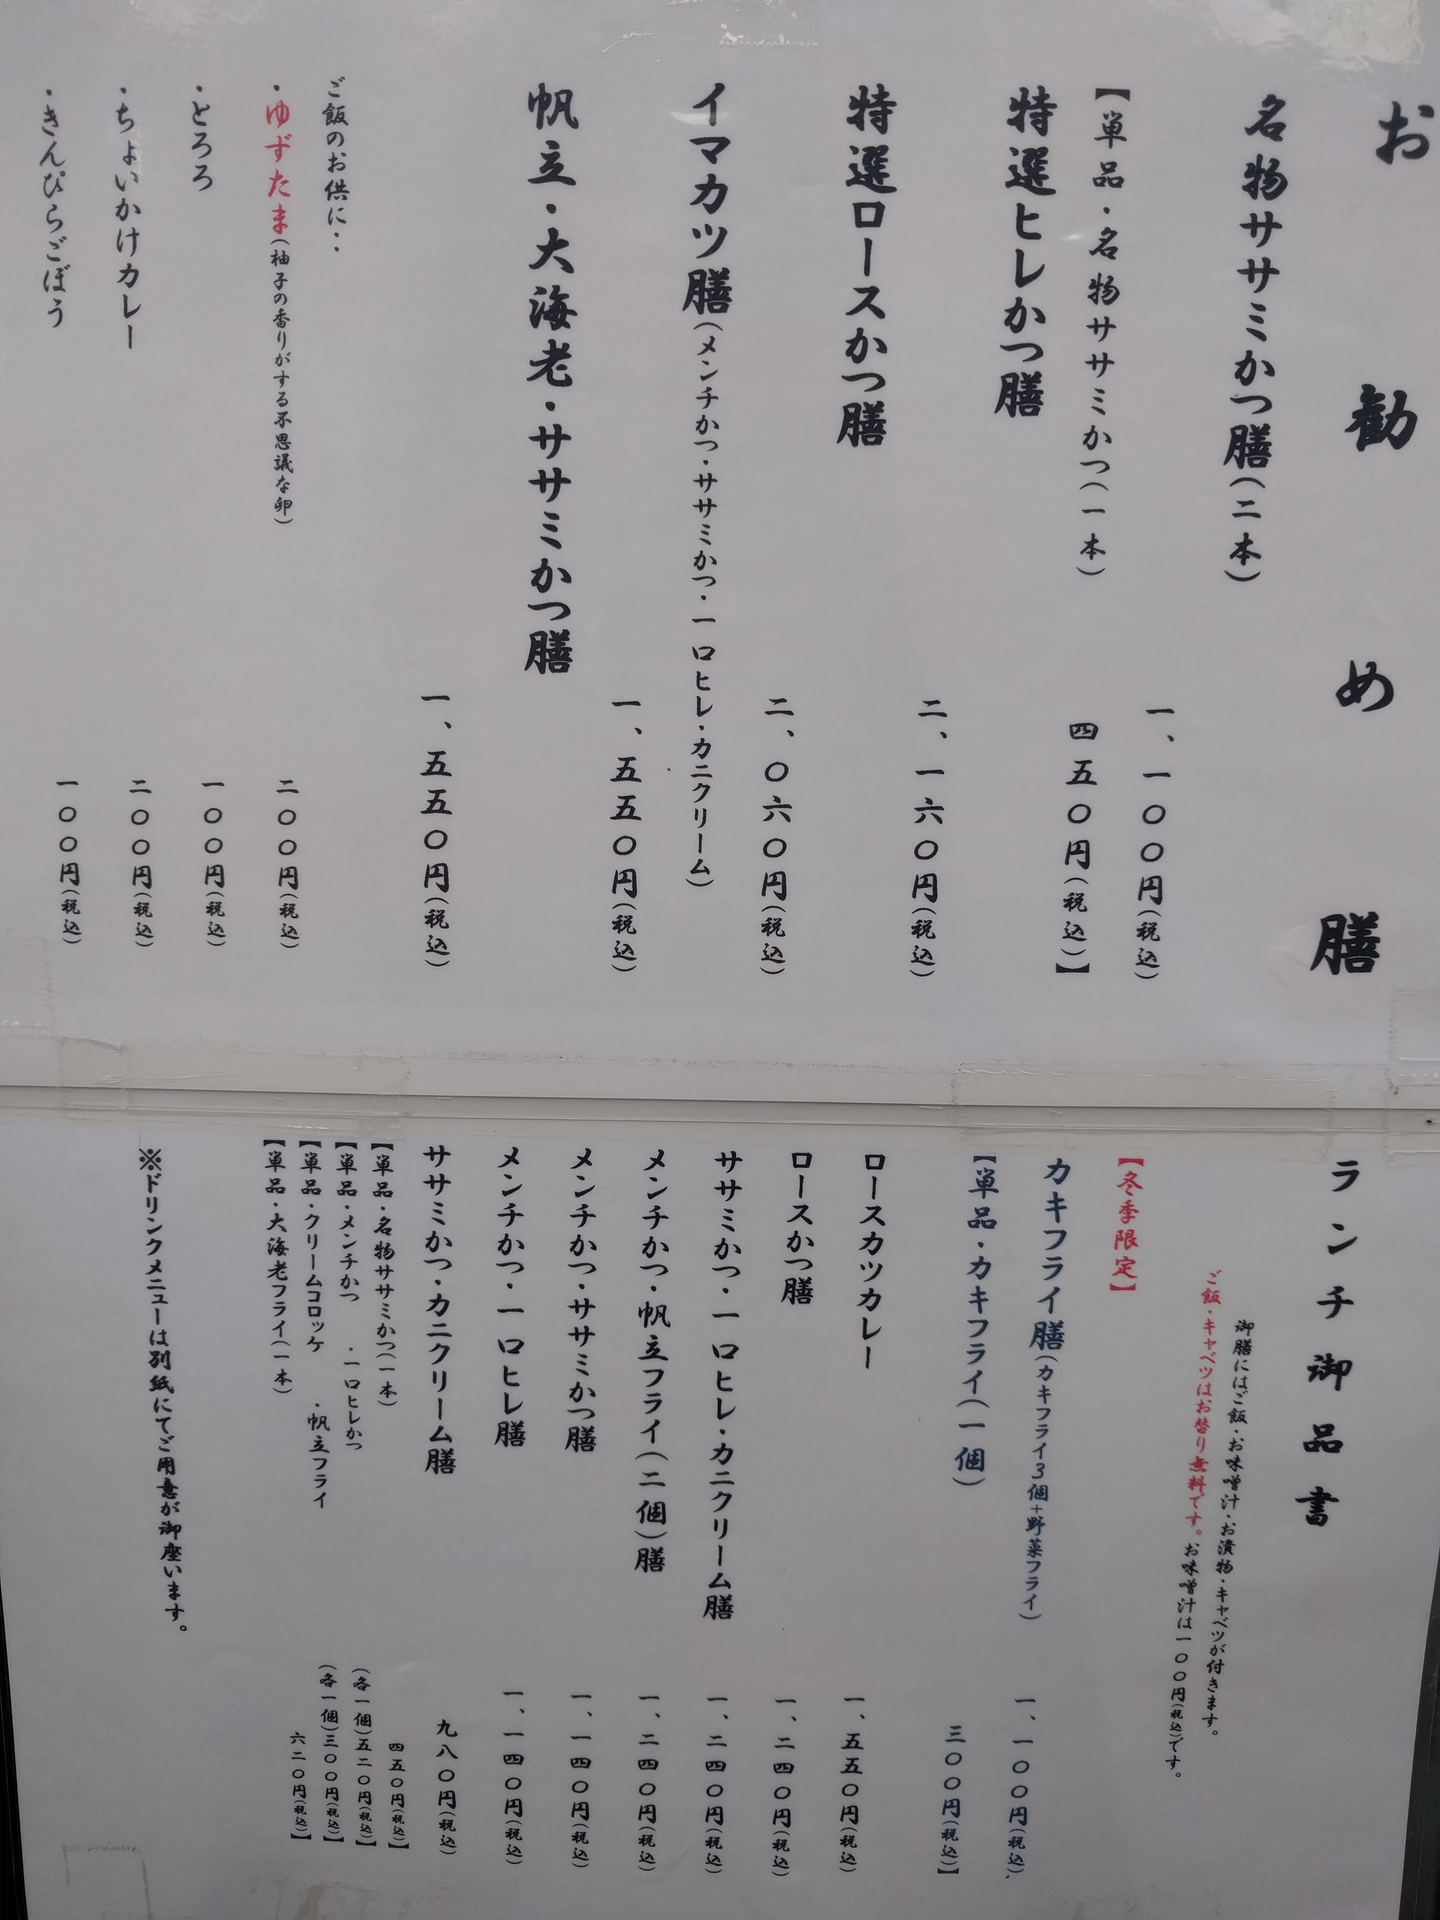 お勧め膳
名物ササミかつ膳(二本)
一、一〇〇円(税込)
【単品・名物ササミかつ(一本)
四五〇円(税込)】
特選ヒレかつ膳
二、一六〇円(税込)
特選ロースかつ膳
二、〇六〇円(税込)
イマカツ膳(メンチかつ・ササミかつ・一口ヒレ・カニクリーム)
一、五五〇円(税込)
帆立・大海老・ササミかつ膳
一、五五〇円(税込)
ご飯のお供に・・
・ゆずたま(柚子の香りがする不思議な卵)
二〇〇円(税込)
・とろろ
一〇〇円(税込)
・ちょいかけカレー
二〇〇円(税込)
・きんぴらごぼう
一〇〇円(税込)
ランチ御品書
御膳にはご飯・お味噌汁・お漬物・キャベツが付きます。
ご飯・キャベツはお替り無料です。お味噌汁は一〇〇円(税込)です。
【冬季限定】
カキフライ膳(カキフライ3個+野菜フライ)
一、一〇〇円(税込)
【単品・カキフライ(一個)
三〇〇円(税込)】
ロースカツカレー
一、五五〇円(税込)
ロースかつ膳
一、二四〇円(税込)
ササミかつ・一口ヒレ・カニクリーム膳
一、二四〇円(税込)
メンチかつ・帆立フライ(二個)膳
一、二四〇円(税込)
メンチかつ・ササミかつ膳
一、一四〇円(税込)
メンチかつ・一口ヒレ膳
一、一四〇円(税込)
ササミかつ・カニクリーム膳
九八〇円(税込)
【単品・名物ササミかつ(一本)
四五〇円(税込)】
【単品・メンチかつ ・一口ヒレかつ
(各一個)五二〇円(税込)】
【単品・クリームコロッケ ・帆立フライ
(各一個)三〇〇円(税込)】
【単品・大海老フライ(一本)
六二〇円(税込)】
※ドリンクメニューは別紙にてご用意が御座います。